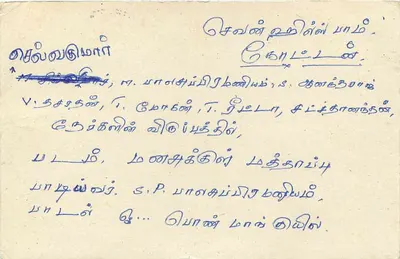 செவன்ஹில்ஸ் பாம்.
தோட்டன்.
செல்வகுமார்
M. பாலசுப்பிரமணியம், S. ஆனந்தராஜ்
V. தசரதன், T. மோகன், T. ரீட்டா, சட்சிதானந்தன்,
நேர்களின் விருப்பத்தில்,
படம். மனசுக்குள் மத்தாப்பு
பாடியவர். S.P. பாலசுப்பிரமணியம்,
பாடல் ஓ... பொண் மாங்குயில்.